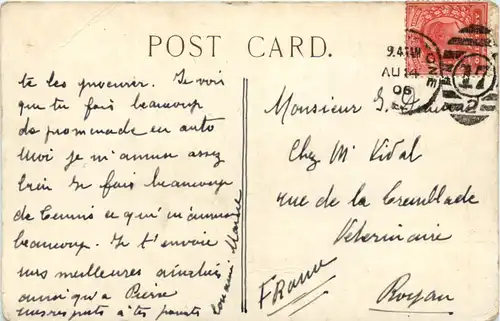 POST CARD.
9.45AM
AU 24
06
17
2
te les procurer. Je vois
que tu fais beaucoup
de promenade en auto
Moi je m'amuse assez
bien Je fais beaucoup
de Tennis ce qui m'amuse
beaucoup. Je t'envoie
mes meilleures amitiés
ainsi qu'a Pierre
mes respects à tes parents
Marcel
Monsieur G.
Chez Mr Vidal
rue de la Tremblade
Veterinaire
France
Royan